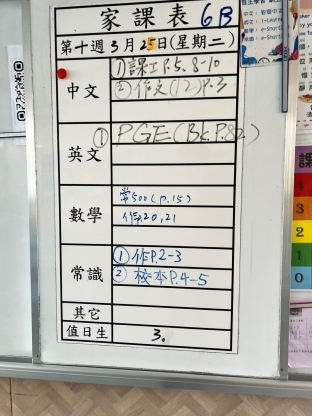 家課表 6B
第十週3月25日(星期二)
中文
①課工P.5, 8-10
②作文(12)P.3
英文
① PGE(BK.P.82)
數學
常500(P.15)
作P.20, 21
常識
①作P.2-3
②校本P.4-5
其它
值日生
3。
4
3
2
1
0